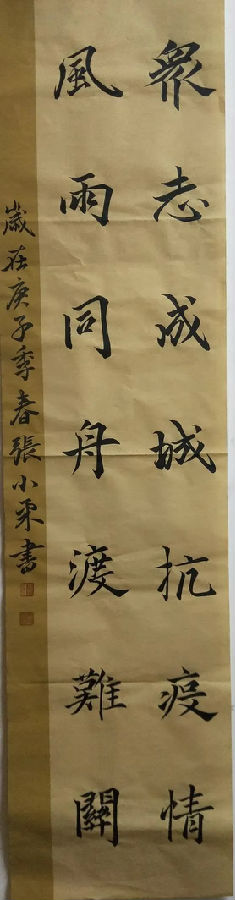 眾志成城抗疫情
風雨同舟渡難關
歲在庚子季春張小平書